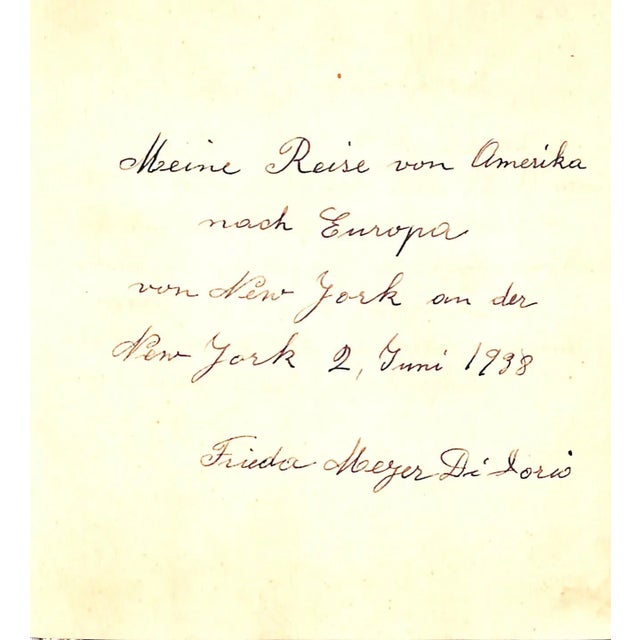 Meine Reise von Amerika
nach Europa
von New York an der
New York 2, Juni 1938
Frieda Meyer Di Iorio